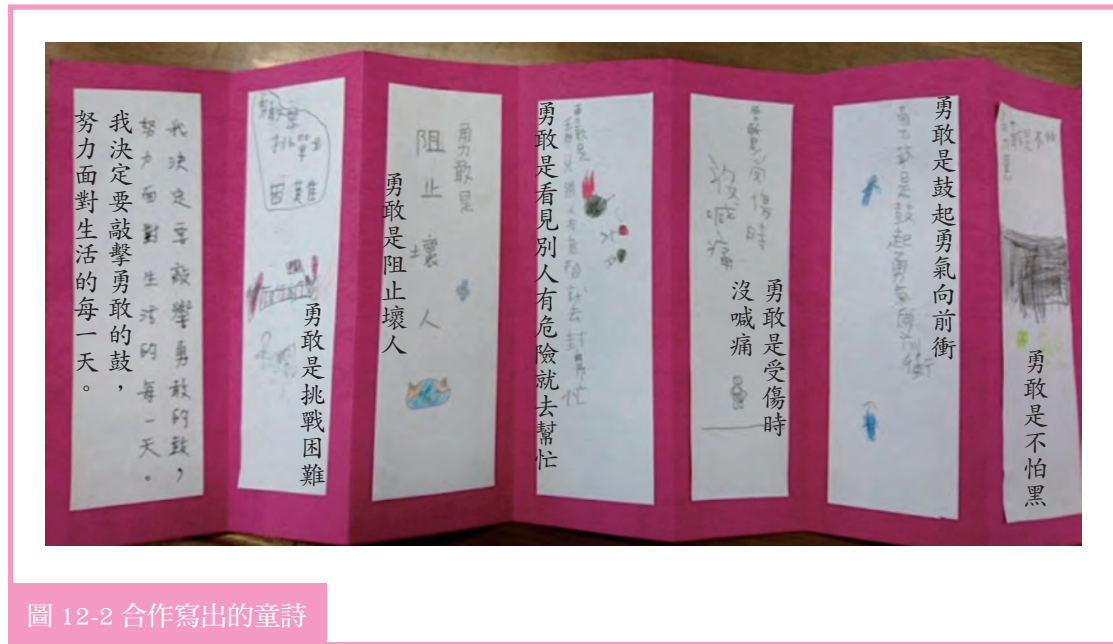 勇敢是不怕黑
勇敢是鼓起勇氣向前衝
勇敢是鼓起勇氣向前衝
勇敢是受傷時
沒喊痛
勇敢是受傷時
沒喊痛
勇敢是看見別人有危險就去幫忙
勇敢是看見別人有危險就去幫忙
勇敢是
阻止壞人
勇敢是阻止壞人
挑戰
困難
勇敢是挑戰困難
我決定要敲擊勇敢的鼓，
努力面對生活的每一天。
我決定要敲擊勇敢的鼓，
努力面對生活的每一天。
圖 12-2 合作寫出的童詩